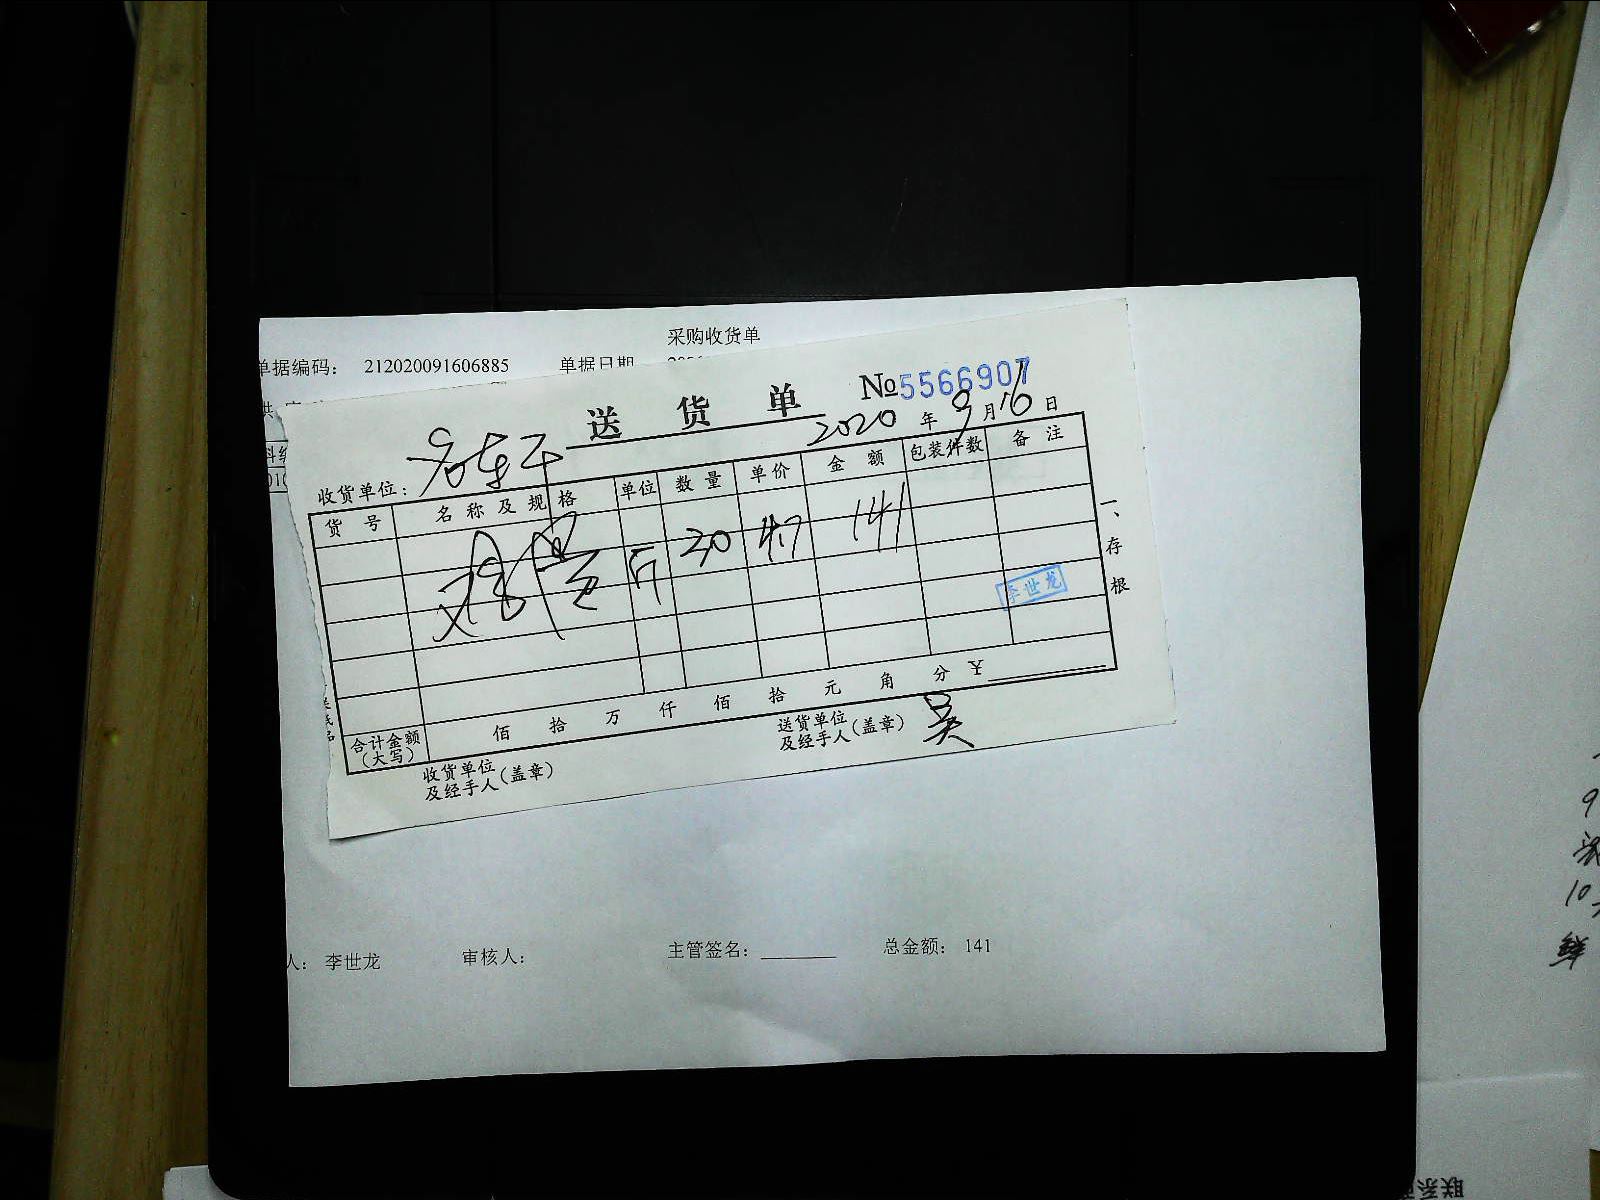 采购收货单
单据编码: 212020091606885 单据日期
送货单 №5566907
2020 年 9 月 16 日
收货单位:
货号 名称及规格 单位 数量 单价 金额 包装件数 备注
斤 30 4.7 141
李世龙
一、存根
合计金额(大写) 佰 拾 万 仟 佰 拾 元 角 分 ¥
收货单位及经手人(盖章) 送货单位及经手人(盖章) 吴
人: 李世龙 审核人: 主管签名: 总金额: 141
9
10
鲜
联系